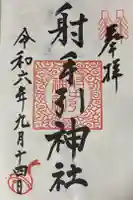 奉拝
射手引神社
令和六年九月十四日